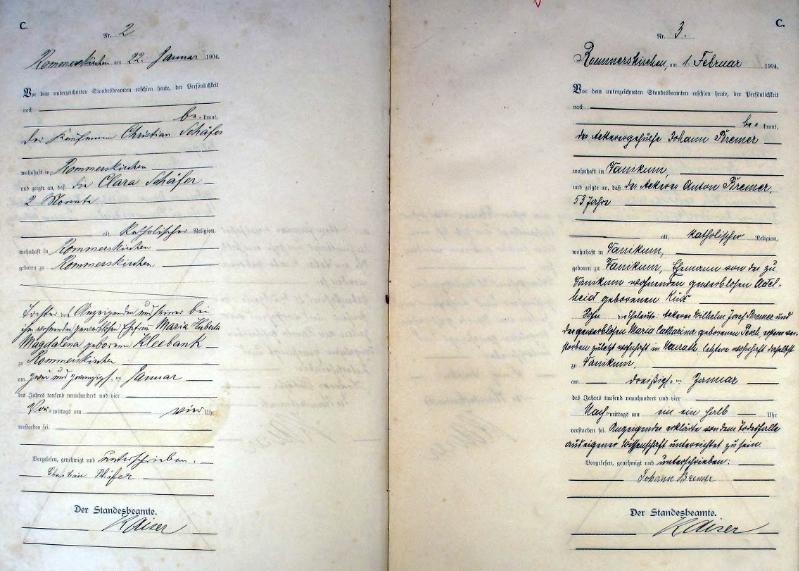 C.
Nr. 2
Rommerskirchen am 22 Januar 1904.
Vor dem unterzeichneten Standesbeamten erschien heute, der Persönlichkeit
nach
be kannt,
der Kaufmann Christian Schäfer
wohnhaft in Rommerskirchen
und zeigte an, daß die Clara Schäfer
2 Monate
alt, katholischer Religion,
wohnhaft in Rommerskirchen
geboren zu Rommerskirchen
Tochter des Anzeigenden und seiner bei
ihm wohnenden Ehefrau Maria Huberta
Magdalena geborenen Kleebank
zu Rommerskirchen
am zwei und zwanzigsten Januar
des Jahres tausend neunhundert und vier
Vor mittags um vier Uhr
verstorben sei.
Vorgelesen, genehmigt und unterschrieben.
Christian Schäfer
Der Standesbeamte.
Kaiser
C.
Nr. 3.
Rommerskirchen, am 1. Februar 1904.
Vor dem unterzeichneten Standesbeamten erschien heute, der Persönlichkeit
nach
be kannt,
der Ackergehülfe Johann Bremer
wohnhaft in Vanikum
und zeigte an, daß der Ackerer Anton Bremer,
53 Jahre
alt, katholischer Religion,
wohnhaft in Vanikum,
geboren zu Vanikum, Ehemann von der zu
Vanikum wohnenden gewerblosen Adel-
heid geborenen
Sohn der Eheleute Ackerer Wilhelm Josef Bremer und
der gewerblosen Maria Catharina geborenen
storben zuletzt wohnhaft in letztere wohnhaft daselbst
zu Vanikum
am dreißigsten Januar
des Jahres tausend neunhundert und vier
Nach mittags um ein ein halb Uhr
verstorben sei. Anzeigender erklärte von dem Todesfalle
aus eigener Wissenschaft unterrichtet zu sein.
Vorgelesen, genehmigt und unterschrieben.
Johann Bremer
Der Standesbeamte.
Kaiser